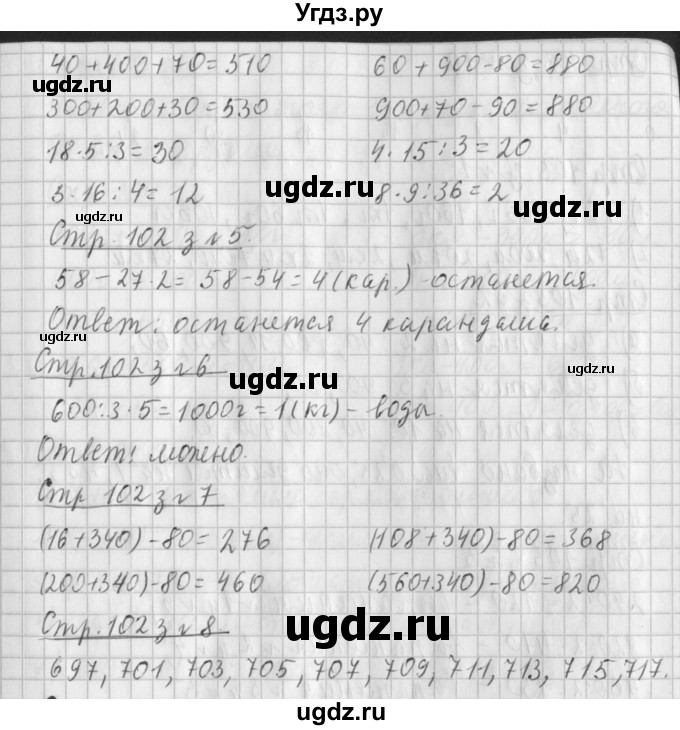 Угдз.ру
40+400+70=510 60+900-80=880
300+200+30=530 900+70-90=880
18·5:3=30 4·15:3=20
3·16:4=12 8·9:36=2
Стр. 102 з №5.
58-27·2=58-54=4(кар.)-останется.
Ответ: останется 4 карандаша.
Стр. 102 з №6
600:3·5=1000г=1(кг)-воды.
Ответ: можно.
Стр 102 з №7
(16+340)-80=276 (108+340)-80=368
(200+340)-80=460 (560+340)-80=820
Стр. 102 з №8
697, 701, 703, 705, 707, 709, 711, 713, 715, 717.
ugdz.ru
ugdz.ru
ugdz.ru
ugdz.ru
ugdz.ru
ugdz.ru
ugdz.ru
ugdz.ru
ugdz.ru
ugdz.ru
ugdz.ru
ugdz.ru
ugdz.ru